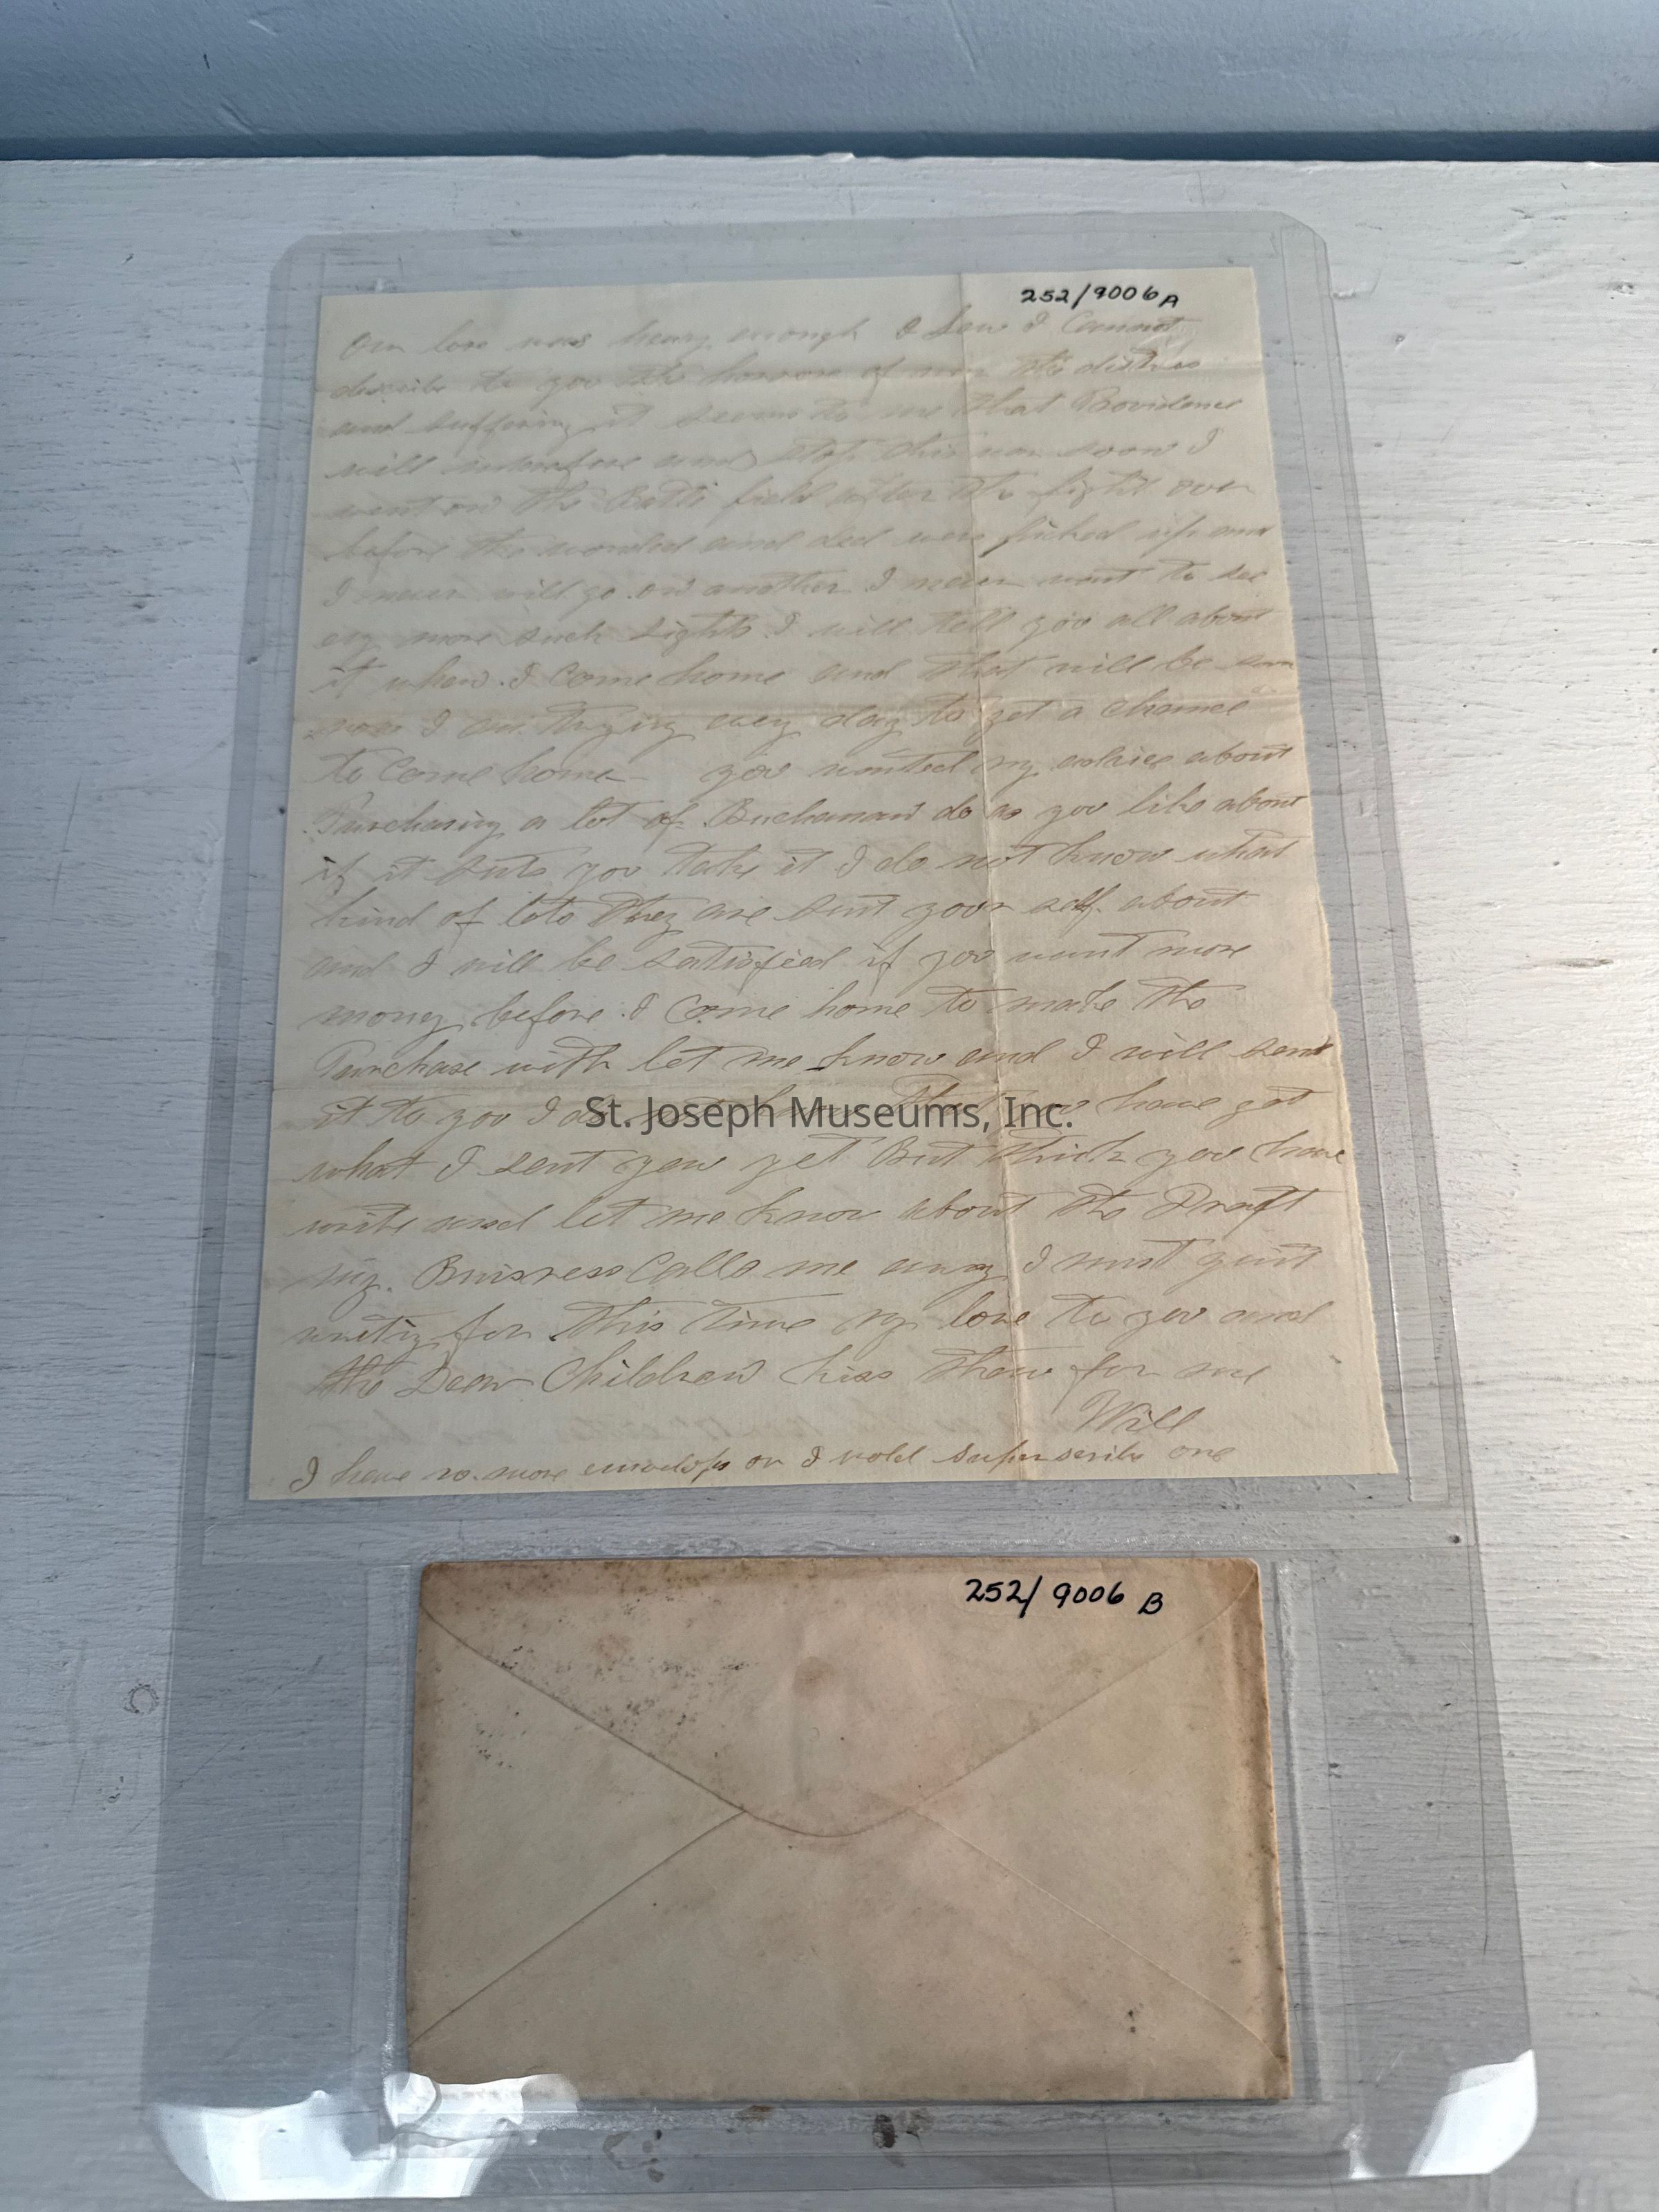 252/9006 A
Our loss was heavy enough I Saw I Cannot
discribe to you the horrors of war the distress
and suffering it seems to me that Providence
will interfere and stop this war soon I
went on the Battle field after the fight over
before the wonded and ded were picked up and
I never will go on another I never want to see
eny more such sights I will tell you all about
it when I Come home and that will be
soon I am trying evey day to get a chance
to Come home you wanted my advice about
Purchasing a lot of Buchanan do as you like about
if it suits you take it I do not know what
kind of lots they are suit your self about
and I will be satisfied if you want more
money before I Come home to make the
Purchase with let me know and I will send
it to you I do not know that you have got
what I sent you yet But think you have
write and let me know about the Draft
ing. Buisness Calls me away I must quit
writing for this time my love to you and
the Dear Children kiss them for me
Will
I have no more envelops or I wold superscribe one
St. Joseph Museums, Inc.
252/9006 B